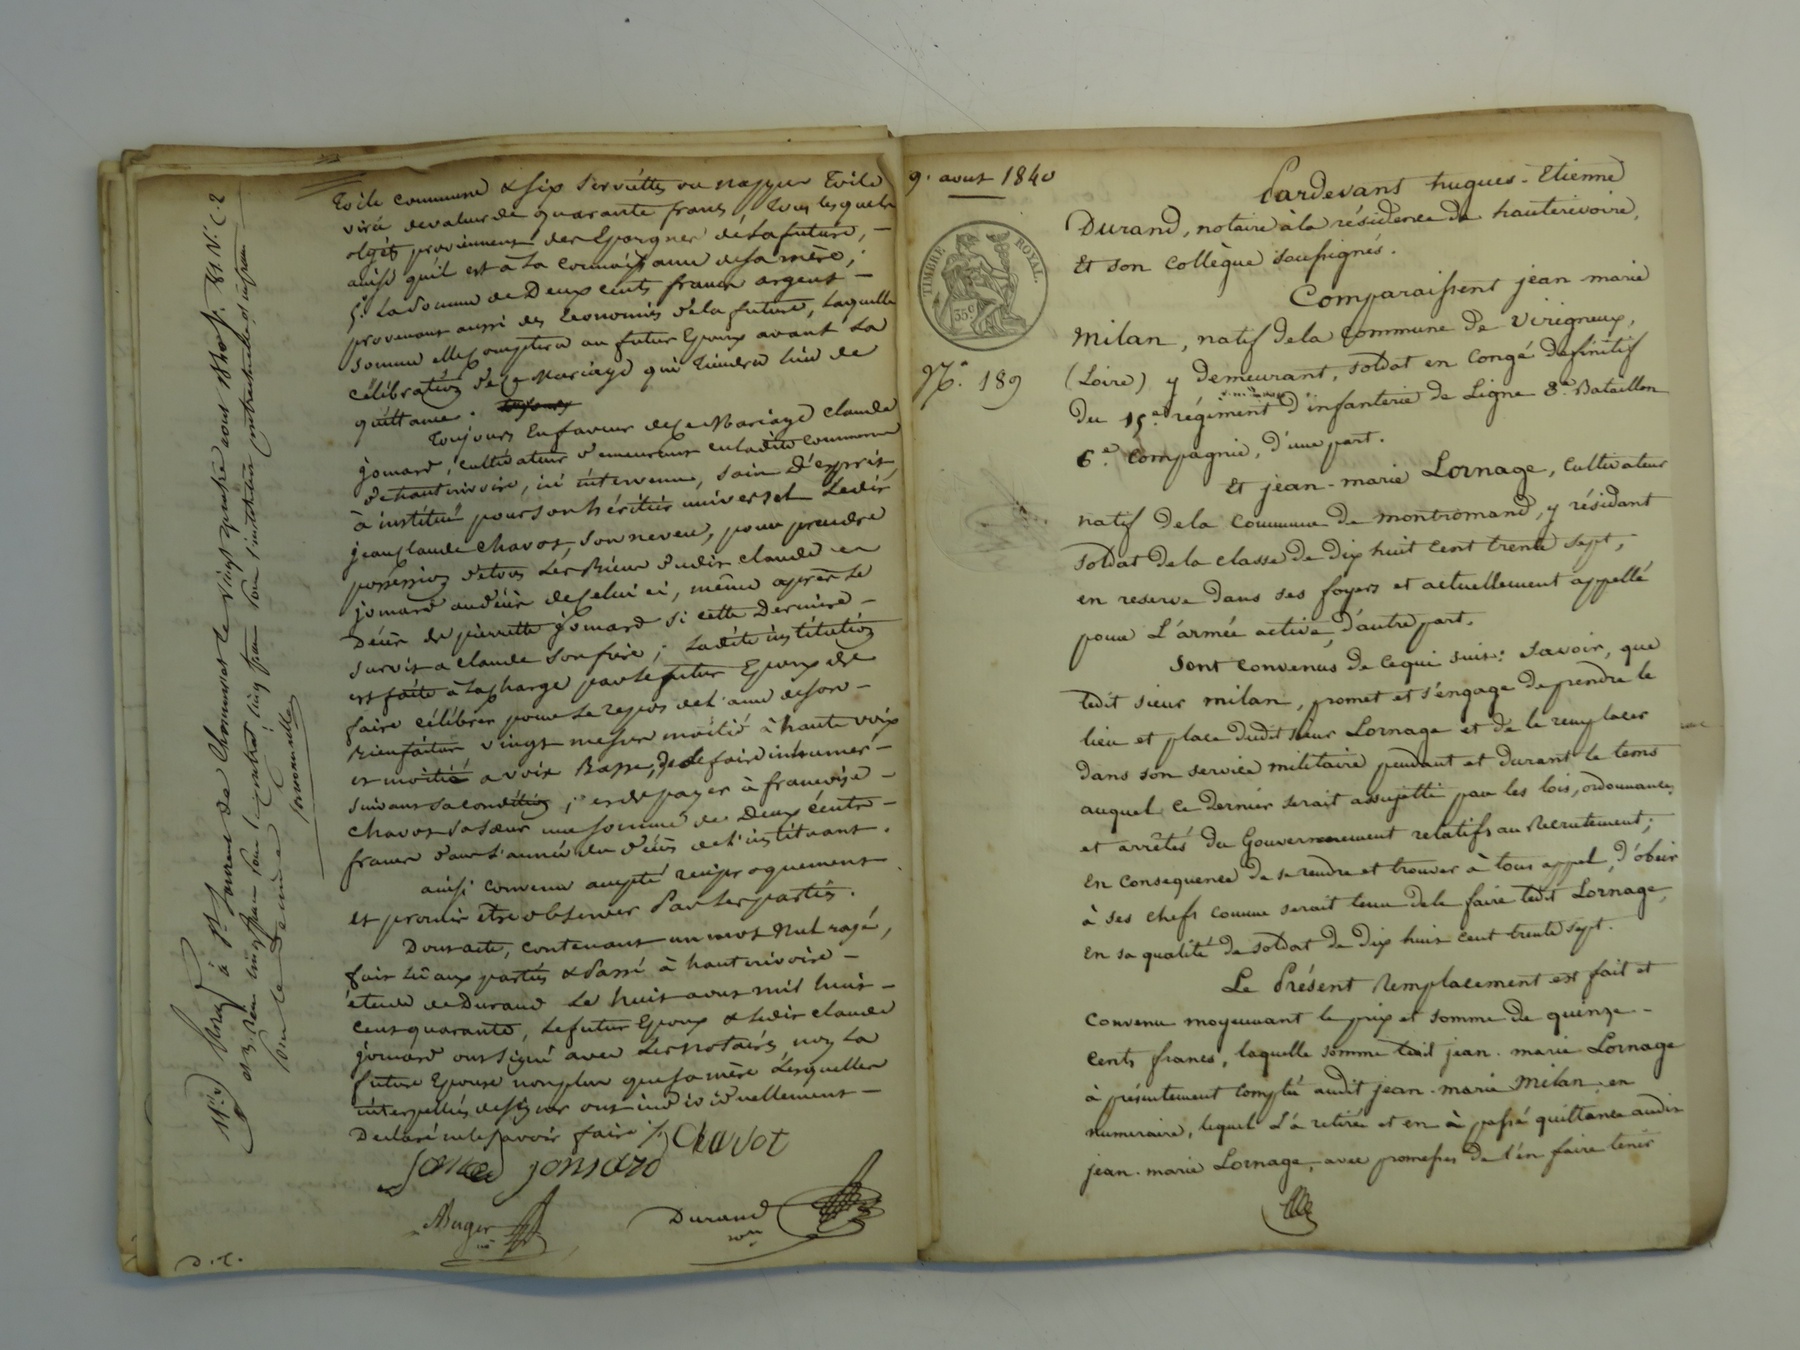 toile commune & six serviettes ou nappes toile
viré de valeur de quarante francs, tous lesquels
objets proviennent des Epargnes de la future, —
ainsi qu'il est à la connaissance de sa mère;
5° La somme de Deux cents francs argent —
provenant aussi des Economies de la future, laquelle
somme elle comptera au futur Epoux avant la
célébration de ce Mariage qui tiendra lieu de
quittance.
Toujours En faveur de ce Mariage claude
jomard, cultivateur demeurant en ladite commune
d'hauterivoire, ici intervenu, sain D'esprit,
à institué pour son héritier universel Ledit
jean claude chavot, son neveu, pour prendre
possession de tous Les Biens dudit claude
jomard au décès de celui ci, même après le
Décès de pierrette jomard si cette Dernière —
survit a claude son frère; Ladite institution
est faite à la charge par le futur Epoux de
faire célébrer pour le repos de l'ame de son —
Bienfaiteur vingt messes moitié à haute voix
et moitié a voix Basse, de le faire inhumer —
suivant sa condition; et de payer à françoise —
chavot sa sœur une somme de Deux cents —
francs dans l'année du décès de l'instituant.
ainsi convenu accepté réciproquement
et promis être observer Par les parties.
Dont acte, contenant un mot Nul rayé,
fait Lû aux parties & Passé à hauterivoire —
étude de Durand Le huit aout mil huit —
cent quarante, Le futur Epoux & Ledit claude
jomard ont signé avec Les Notaires non La
future Epouse non plus que sa mère Lesquelles
interpellées de signer ont individuellement —
Declaré ne le savoir faire
Chavot
jomard
Auger
Durand
D. R.
à St Laurent de Chamousset le vingt
pour l'institution contractuelle
9. aout 1840
TIMBRE ROYAL.
35c
N° 189
Pardevant hugues-Etienne
Durand, notaire à la résidence de hauterivoire,
Et son collègue soussignés.
Comparaissent jean marie
Milan, natif de la commune de Virigneux,
(Loire) y demeurant, soldat en congé definitif
du 15e régiment d'infanterie de Ligne 3e Bataillon
6e Compagnie, d'une part.
Et jean-marie Lornage, cultivateur
natif de la commune de montromand, y résidant
soldat de la classe de dix huit cent trente sept,
en reserve dans ses foyers et actuellement appellé
pour L'armée active, d'autre part.
Sont convenus de ce qui suit: Savoir, que
ledit sieur milan, promet et s'engage de prendre le
lieu et place dudit sieur Lornage et de le remplacer
dans son service militaire pendant et durant le tems
auquel ce dernier serait assujetti par les lois, ordonnances
et arrêtés du Gouvernement relatifs au Recrutement;
En conséquence de se rendre et trouver à tous appel, d'obéir
à ses chefs comme serait tenu de le faire ledit Lornage,
En sa qualité de soldat de dix huit cent trente sept.
Le Présent Remplacement est fait et
convenu moyennant le prix et somme de quinze —
cents francs, laquelle somme ledit jean-marie Lornage
à présentement comptée audit jean-marie Milan en
numeraire, lequel l'à retirée et en à passé quittance audit
jean-marie Lornage, avec promesses de l'en faire tenir